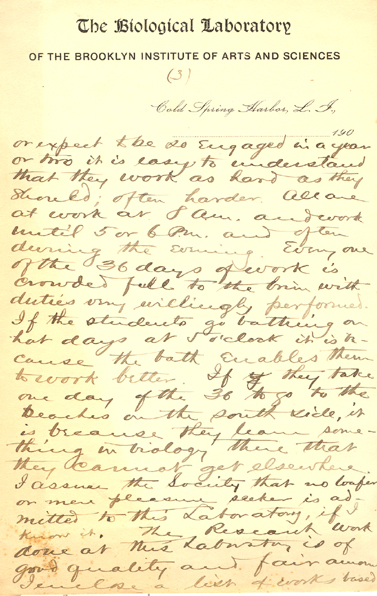 The Biological Laboratory
OF THE BROOKLYN INSTITUTE OF ARTS AND SCIENCES
(3)
Cold Spring Harbor, L. I.,
190
or expect to be so engaged in a year
or two it is easy to understand
that they work as hard as they
should; often harder. All are
at work at 8 A.m. and work
until 5 or 6 P.m. and often
during the evening. Every one
of the 36 days of work is
crowded full to the brim with
duties very willingly performed.
If the students go bathing on
hot days at 5 o'clock it is be-
cause the bath enables them
to work better. If they take
one day of the 36 to go to the
beaches on the south side, it
is because they learn some-
thing in biology there that
they cannot get elsewhere.
I assure the Society that no loafer
or mere pleasure seeker is ad-
mitted to this Laboratory, if I
know it. The Research work
done at this Laboratory is of
good quality and fair amount
I enclose a list of works based